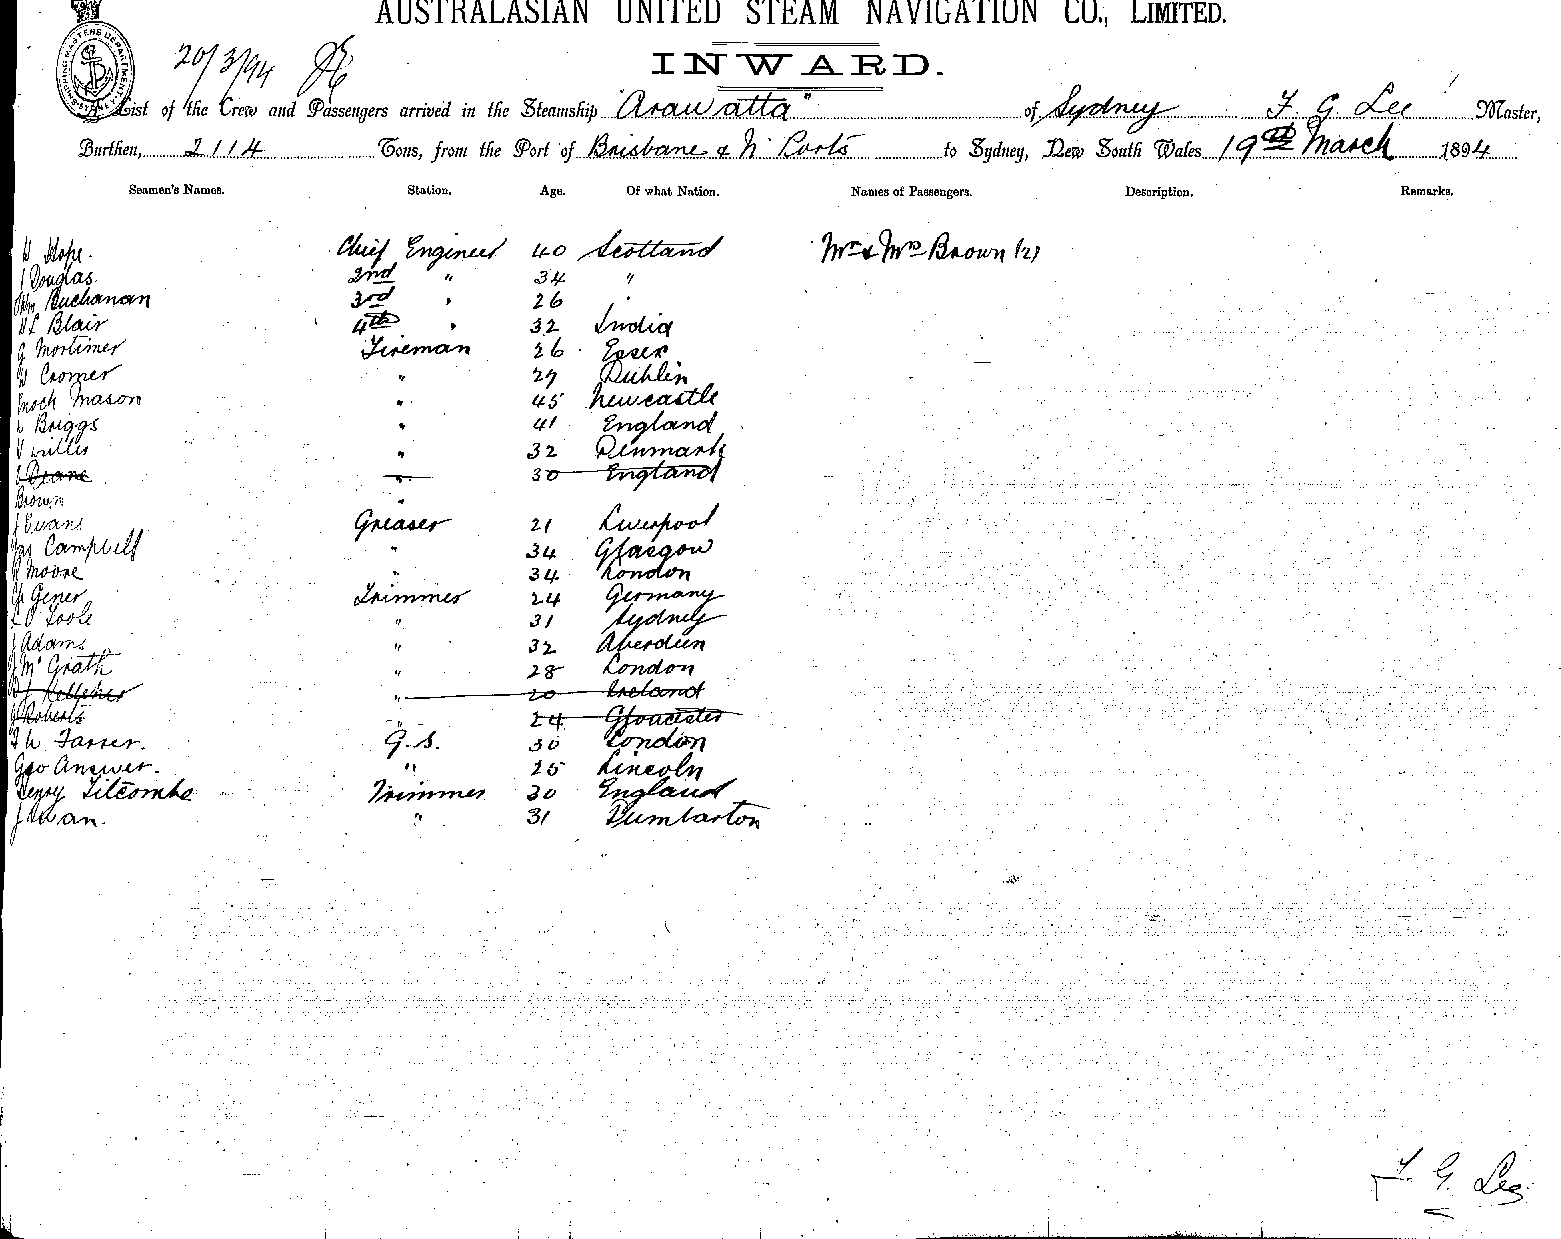 AUSTRALASIAN UNITED STEAM NAVIGATION CO., LIMITED.
20/3/94
INWARD.
List of the Crew and Passengers arrived in the Steamship "Arawatta" of Sydney F. G. Lee Master,
Burthen, 2114 Tons, from the Port of Brisbane & N. Ports to Sydney, New South Wales 19th March 1894
Seamen's Names. Station. Age. Of what Nation. Names of Passengers. Description. Remarks.
Hope. Chief Engineer 40 Scotland Mr & Mrs Brown (2)
Douglas 2nd " 34 "
Buchanan 3rd " 26 "
Blair 4th " 32 India
G Mortimer Fireman 26 Essex
Cromer " 27 Dublin
Enoch Mason " 45 Newcastle
Briggs " 41 England
Willis " 32 Denmark
Deane " 30 England
Brown "
J Evans Greaser 21 Liverpool
Jas Campbell " 34 Glasgow
Moore " 34 London
Gener Trimmer 24 Germany
O Toole " 31 Sydney
J Adams " 32 Aberdeen
J McGrath " 28 London
J Kelleher " 20 Ireland
Roberts " 24 Gloucester
Farrer. G.S. 30 London
Geo Answer. " 25 Lincoln
Henry Titcombe Trimmer 30 England
J Swan. " 31 Dumbarton
F. G. Lee